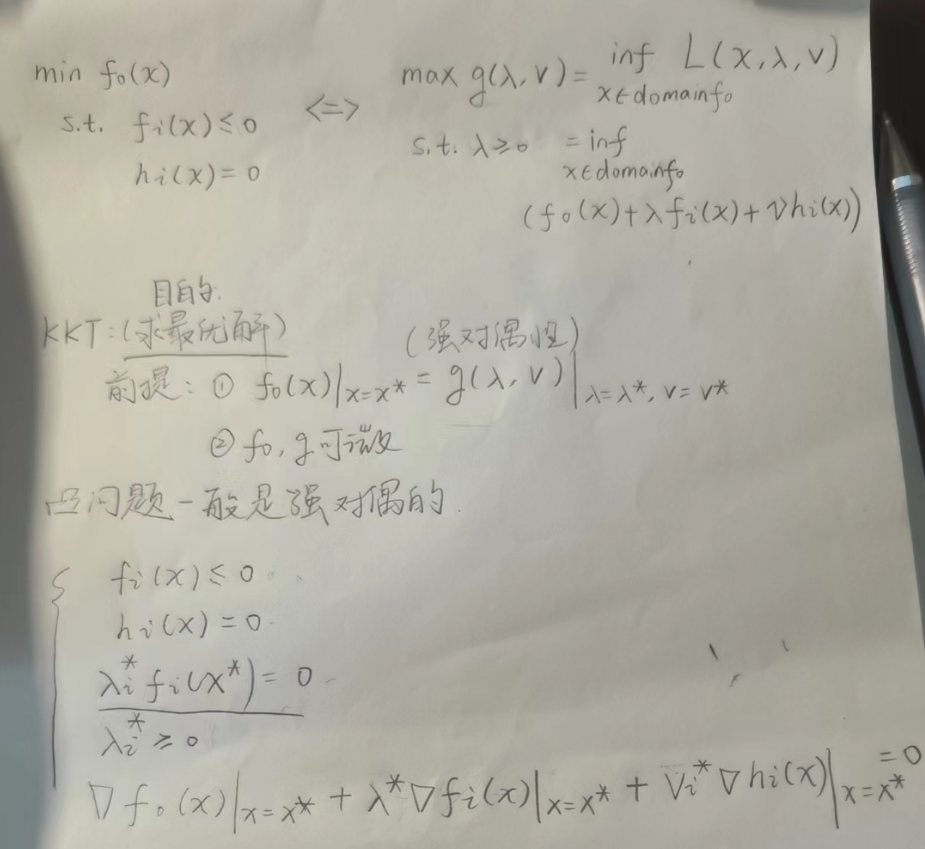 min f₀(x)
s.t. fi(x) ≤ 0
hi(x) = 0
<=>
max g(λ, ν) = inf L(x, λ, ν)
x∈domainf₀
s.t. λ≥0 = inf
x∈domainf₀
(f₀(x)+λfi(x)+νhi(x))
目的:
KKT:(求最优解) (强对偶性)
前提: ① f₀(x)|x=x* = g(λ, ν)|λ=λ*, ν=ν*
② f₀, g可微
凸问题一般是强对偶的.
{ fi(x) ≤ 0
hi(x) = 0
λi* fi(x*) = 0
λi* ≥ 0
∇f₀(x)|x=x* + λ*∇fi(x)|x=x* + νi*∇hi(x)|x=x* = 0